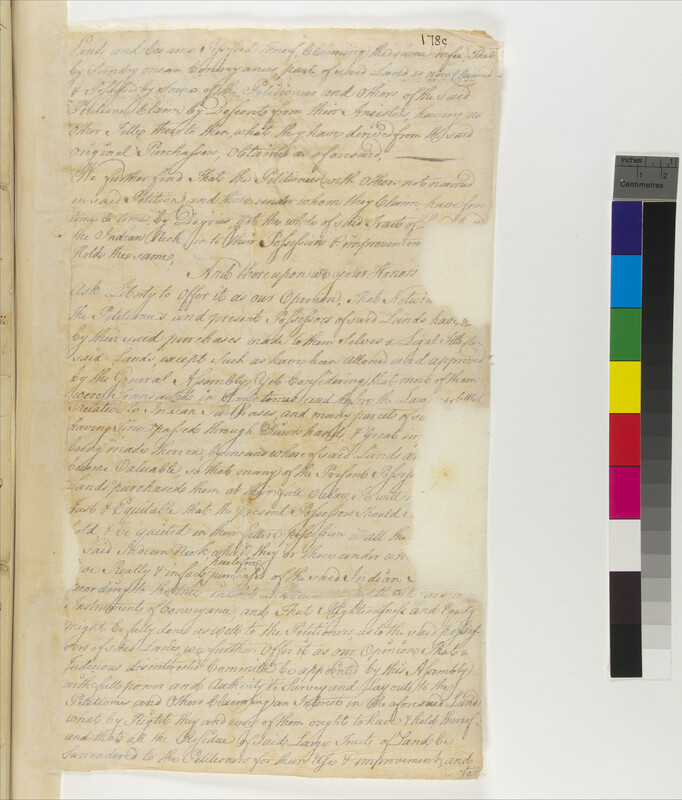 178c
Lands and became Possessed thereof, Claiming the same in fee. That
by Sundry mean Conveyances, part of said Land is now Claimed
& Possessd by some of the Petitioners and others of the said
Petitioners Claim by Descent from their Ancestors, having no
other Title thereto then what they have derived from the said
original Purchasers, Obtained as aforesaid,
We further find That the Petitioners with others not named
in said Petition and those under whom they Claim have from
time to time by Degrees got the whole of said Tracts of
the Indian Neck into their Possession & improvement
hold the same,
And thereupon we your Honors
Ask Liberty to offer it as our Opinion, That
the Petitioners and present Possessors of said Lands have
by their said purchases made to them selves a Legal Title
said Lands except Such as have been allowed and approved
by the General Assembly, Yet Considering that most of them
were Transacted in and the Law
Relative to Indian Purchases, and many parcels of
having Since passed through hands, & great
being made thereon, by means whereof said Lands
become Valuable, so that many of the Present
Lands purchased them at their full Value,
Just & Equitable that the present Possessors Should
hold, & be quieted in their Possession all the
said Indian Neck which they or those under
have Really & in fact purchased of the said Indian
according to the
Instruments of Conveyance and That Righteousness and Equity
might be fully done as well to the Petitioners as to the said Posses-
sors of said Lands, we further Offer it as our Opinion That a
Judicious disinterested Committee be appointed by this Assembly
with full power and Authority to Survey and Lay out to the
Petitioners and Others Claiming an Interest in the aforesaid Land
what by Right they and every of them ought to have & hold thereof
and that all the Residue of said Large Tracts of Land be
Surrendered to the Petitioners for their Use & improvement, and